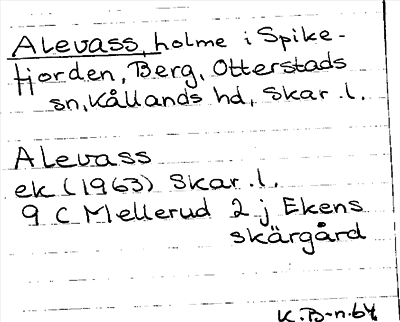 Alevass, holme i Spike-
fjorden, Berg, Otterstads
sn, Kållands hd, Skar.l.
Alevass
ek (1963) Skar.l.
9 C Mellerud 2 j Ekens
skärgård
K.B-n.64